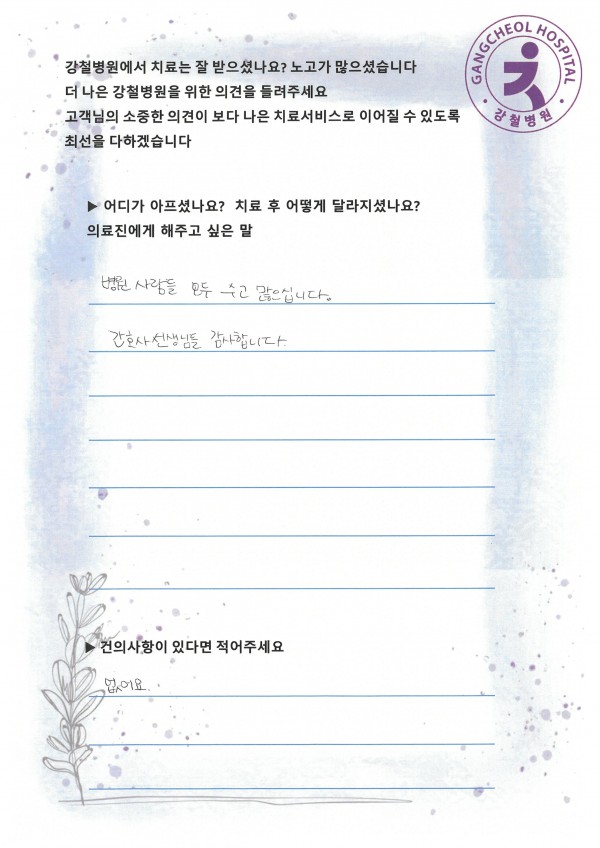 강철병원에서 치료는 잘 받으셨나요? 노고가 많으셨습니다
더 나은 강철병원을 위한 의견을 들려주세요
고객님의 소중한 의견이 보다 나은 치료서비스로 이어질 수 있도록
최선을 다하겠습니다
GANGCHEOL HOSPITAL
강철병원
▶ 어디가 아프셨나요? 치료 후 어떻게 달라지셨나요?
의료진에게 해주고 싶은 말
병원 사람들 모두 수고 많으십니다.
간호사선생님들 감사합니다.
▶ 건의사항이 있다면 적어주세요
없어요.